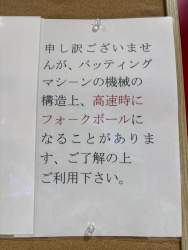 申し訳ございませ
んが、バッティング
マシーンの機械の
構造上、高速時に
フォークボールに
なることがありま
す、ご了解の上
ご利用下さい。